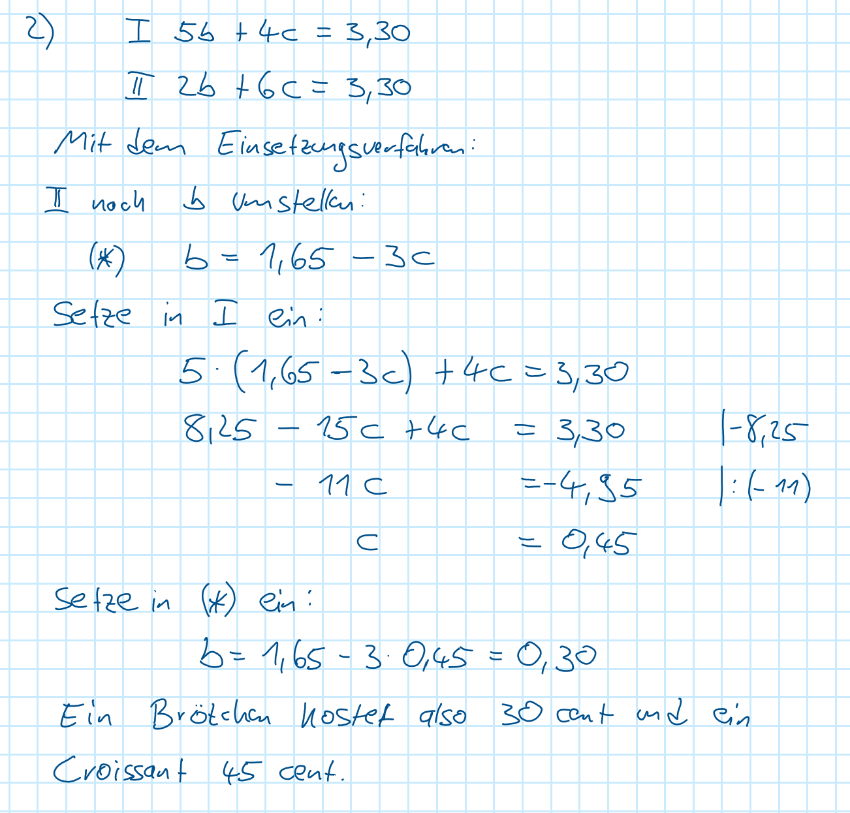 2) I 5b + 4c = 3,30
II 2b + 6c = 3,30
Mit dem Einsetzungsverfahren:
II nach b Umstellen:
(*) b = 1,65 - 3c
Setze in I ein:
5 · (1,65 - 3c) + 4c = 3,30
8,25 - 15c + 4c = 3,30 |-8,25
- 11c = -4,95 |:(-11)
c = 0,45
Setze in (*) ein:
b = 1,65 - 3 · 0,45 = 0,30
Ein Brötchen kostet also 30 cent und ein
Croissant 45 cent.